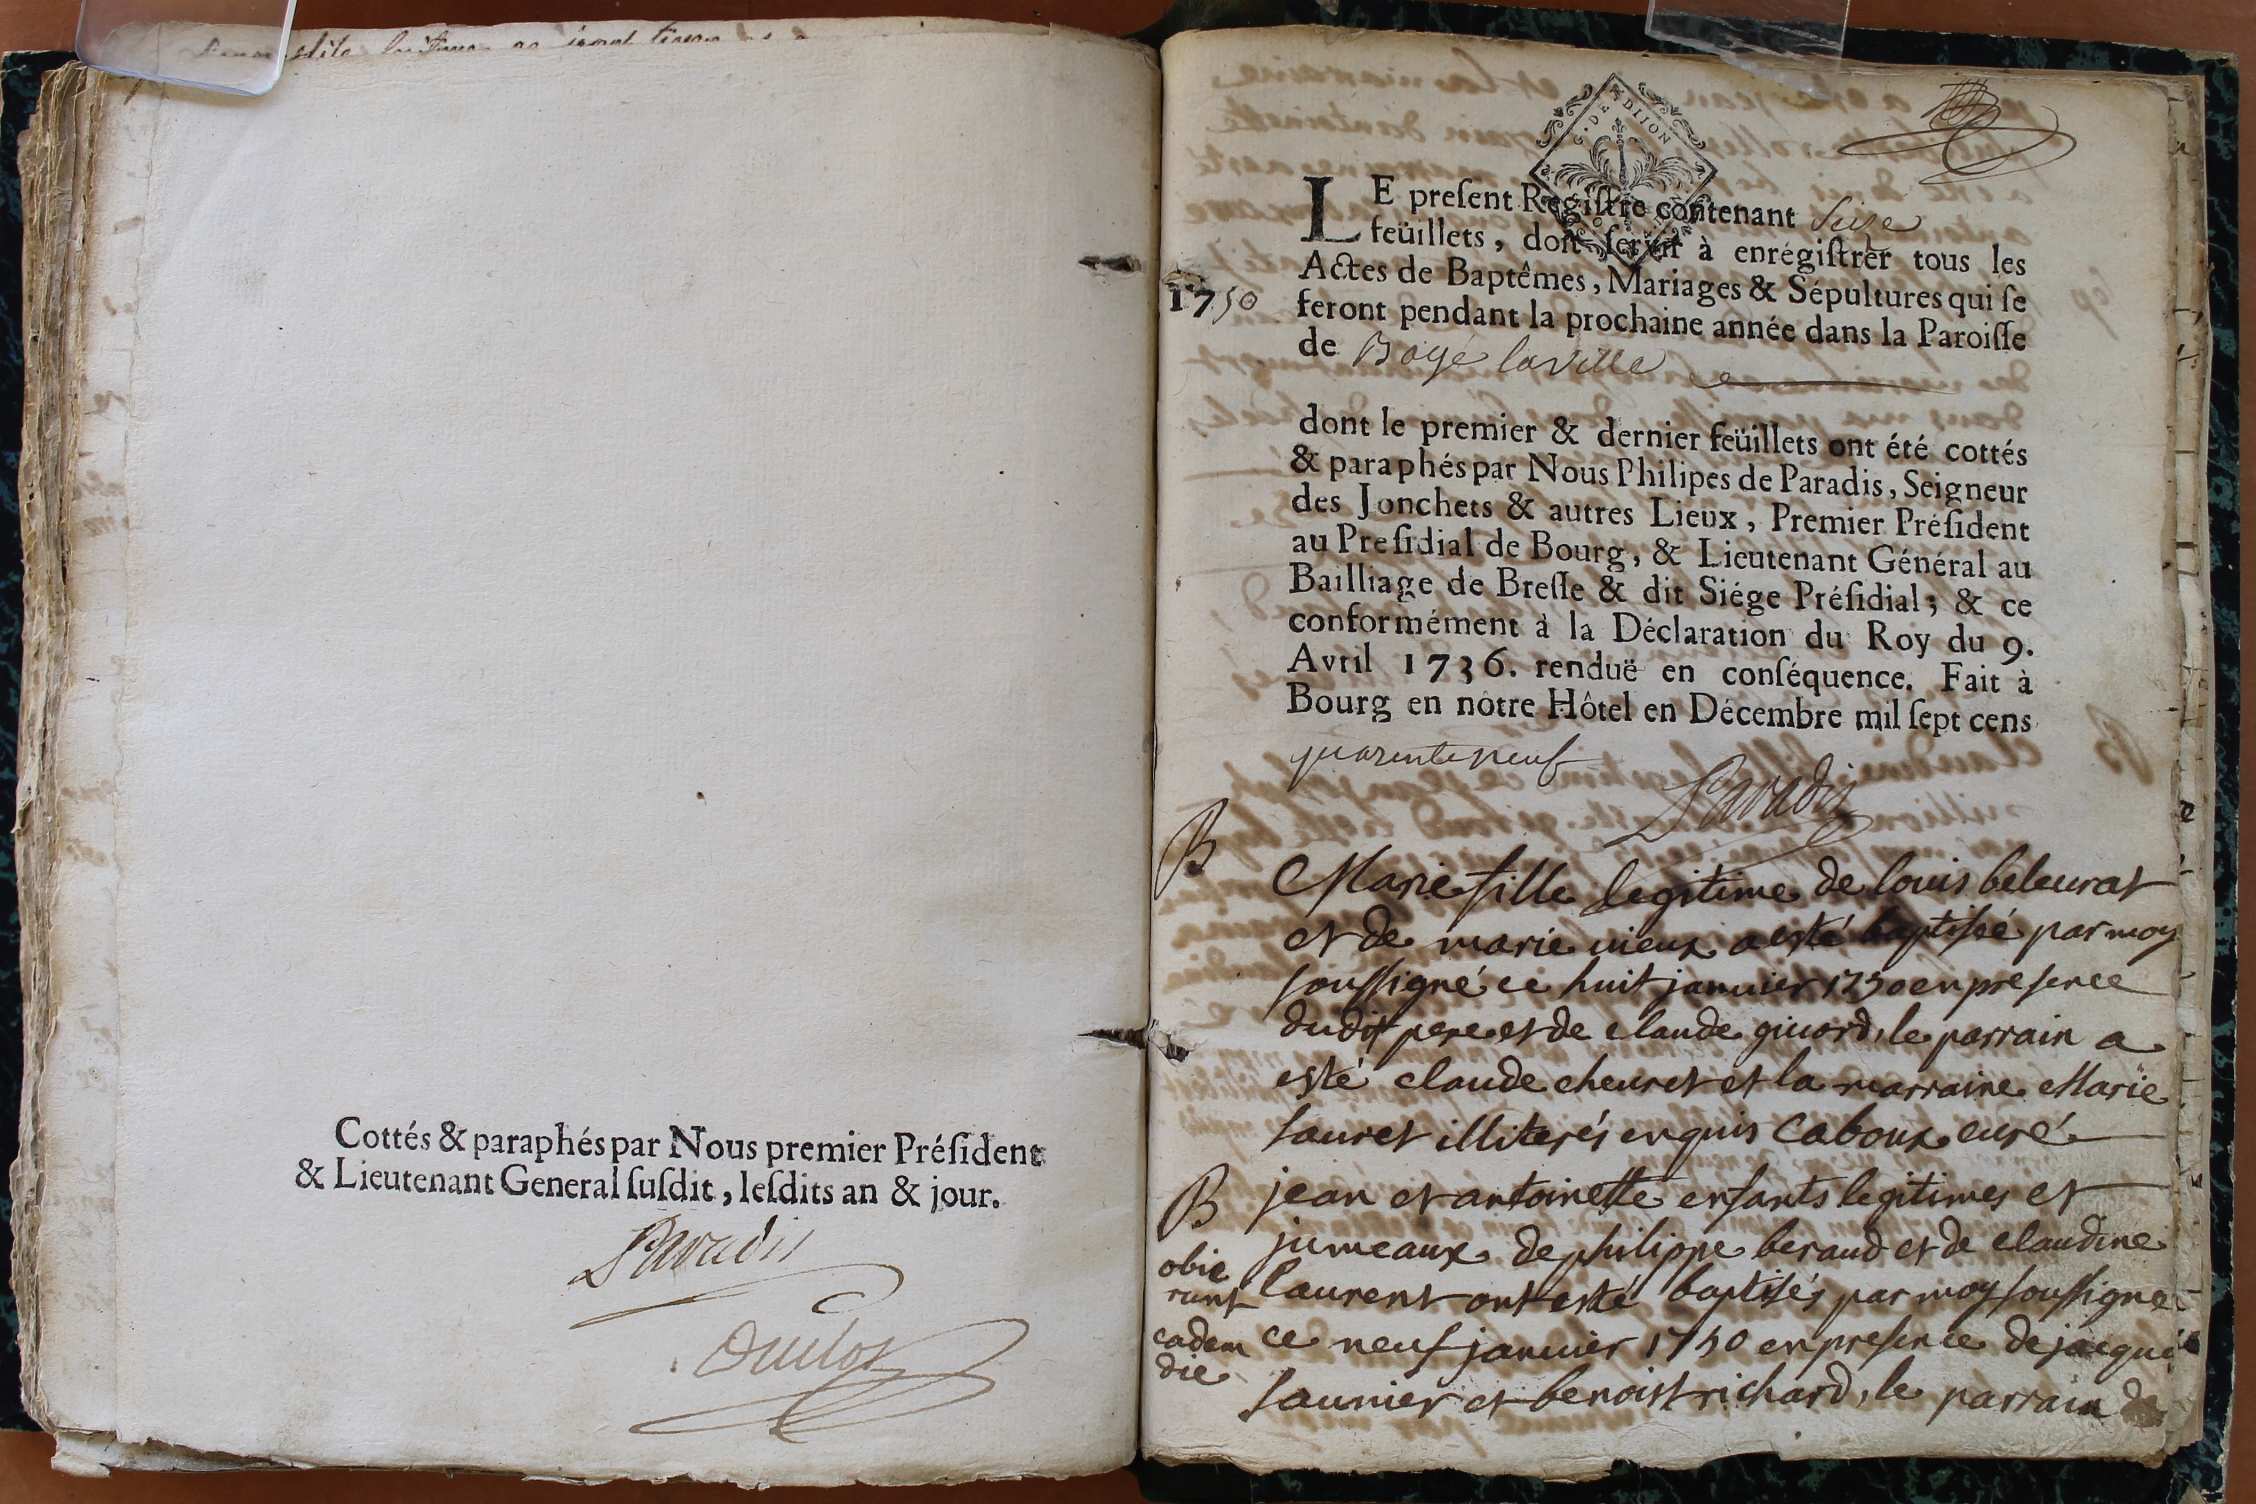 Cottés & paraphés par Nous premier Préſident
& Lieutenant General ſuſdit, leſdits an & jour.
Paradis
G. DE DIJON
LE preſent Regiſtre contenant Seize
feüillets, doit ſervir à enrégiſtrer tous les
Actes de Baptêmes, Mariages & Sépultures qui ſe
1750
feront pendant la prochaine année dans la Paroiſſe
de Bagé laville
dont le premier & dernier feüillets ont été cottés
& paraphés par Nous Philipes de Paradis, Seigneur
des Jonchets & autres Lieux, Premier Préſident
au Preſidial de Bourg, & Lieutenant Général au
Bailliage de Breſſe & dit Siége Préſidial; & ce
conformément à la Déclaration du Roy du 9.
Avril 1736. renduë en conſéquence. Fait à
Bourg en nôtre Hôtel en Décembre mil ſept cens
quarente neuf
Paradis
B
Marie fille legitime de louis beleurat
et de marie vieux a esté baptisée par moy
soussigné ce huit janvier 1750 en presence
dudit pere et de claude givord, le parrain a
esté claude chevret et la marraine Marie
sauret illiterés enquis Caboux curé
B
jean et antoinette enfants legitimes et
jumeaux de philippe beraud et de claudine
obie
runt
eadem
die
laurent ont esté baptisés par moy soussigné
ce neuf janvier 1750 en presence de jacques
saunier et benoist richard, le parrain de